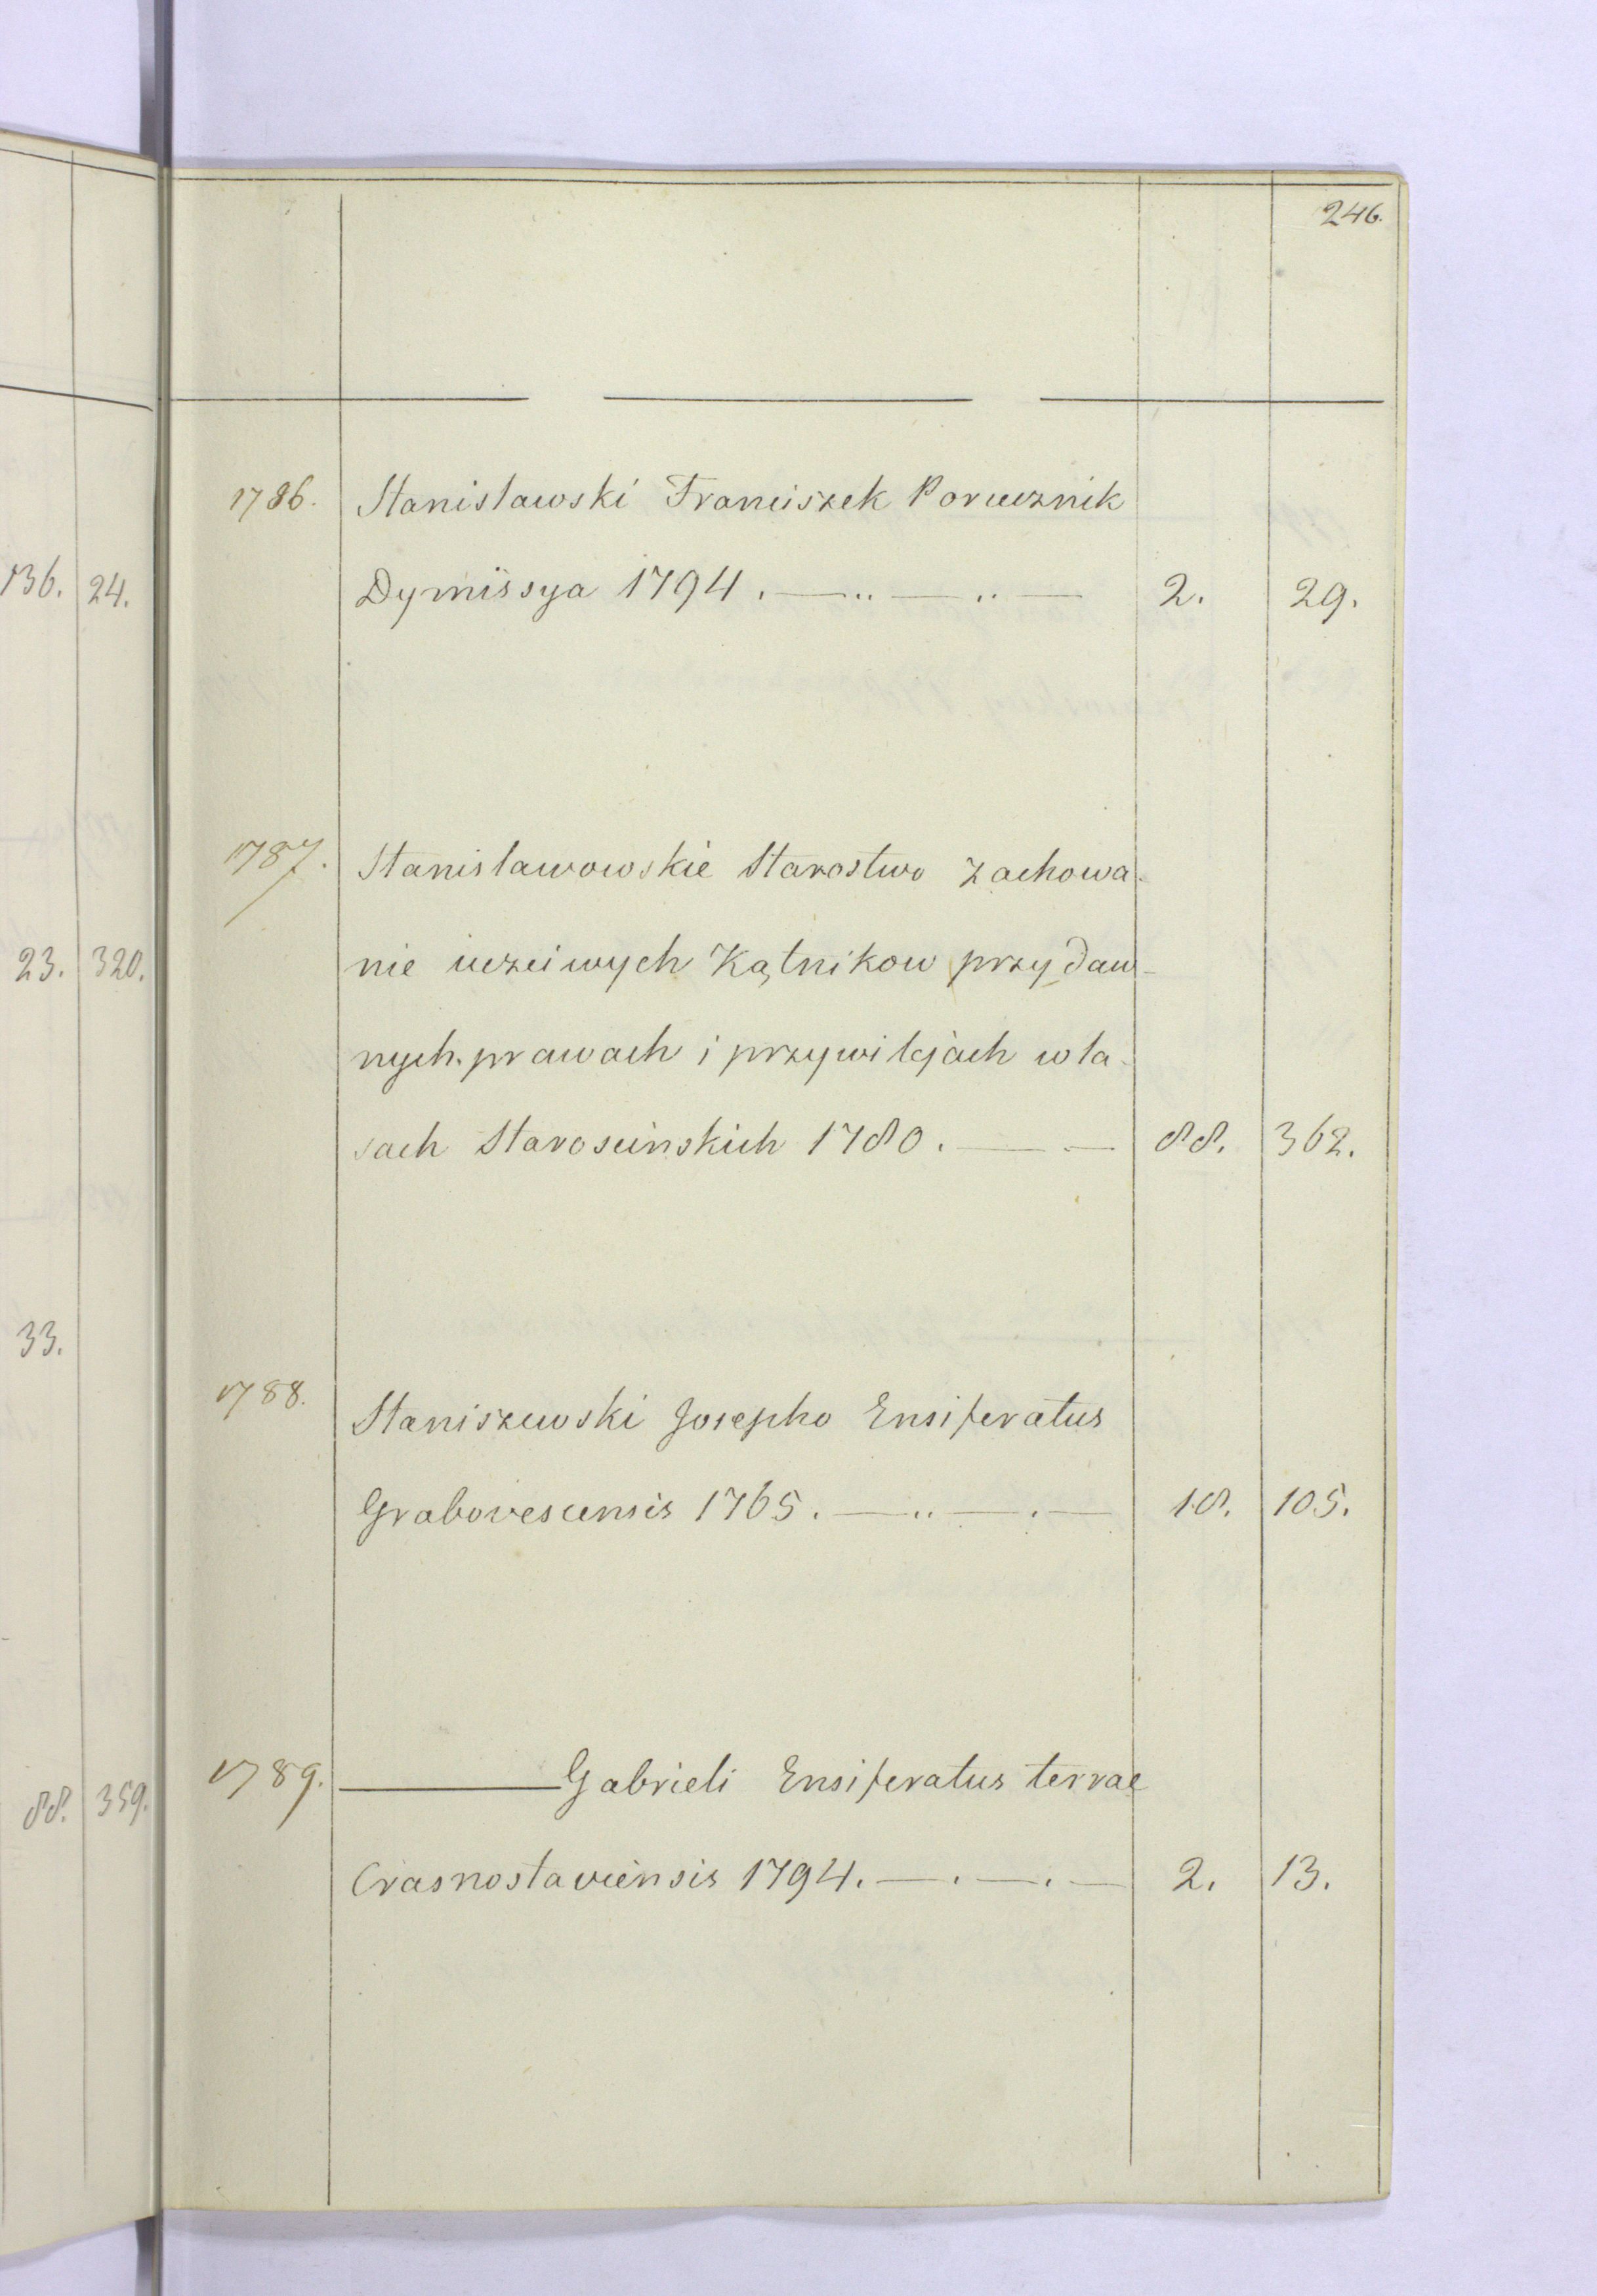 246.
1786. Stanisławski Franciszek Porucznik
Dymissya 1794. — .. — .. — 2. 29.
1787. Stanisławowskie Starostwo zachowa-
nie uczciwych Kątnikow przy daw-
nych prawach i przywilejach w la-
sach Starościnskich 1780. — . — 88. 362.
1788. Staniszewski Josepho Ensiferatus
Grabovescensis 1765. — .. — . — 18. 105.
1789. ——— Gabrieli Ensiferatus terrae
Crasnostaviensis 1794. — . — . — 2. 13.
136. 24.
23. 320.
33.
88. 359.